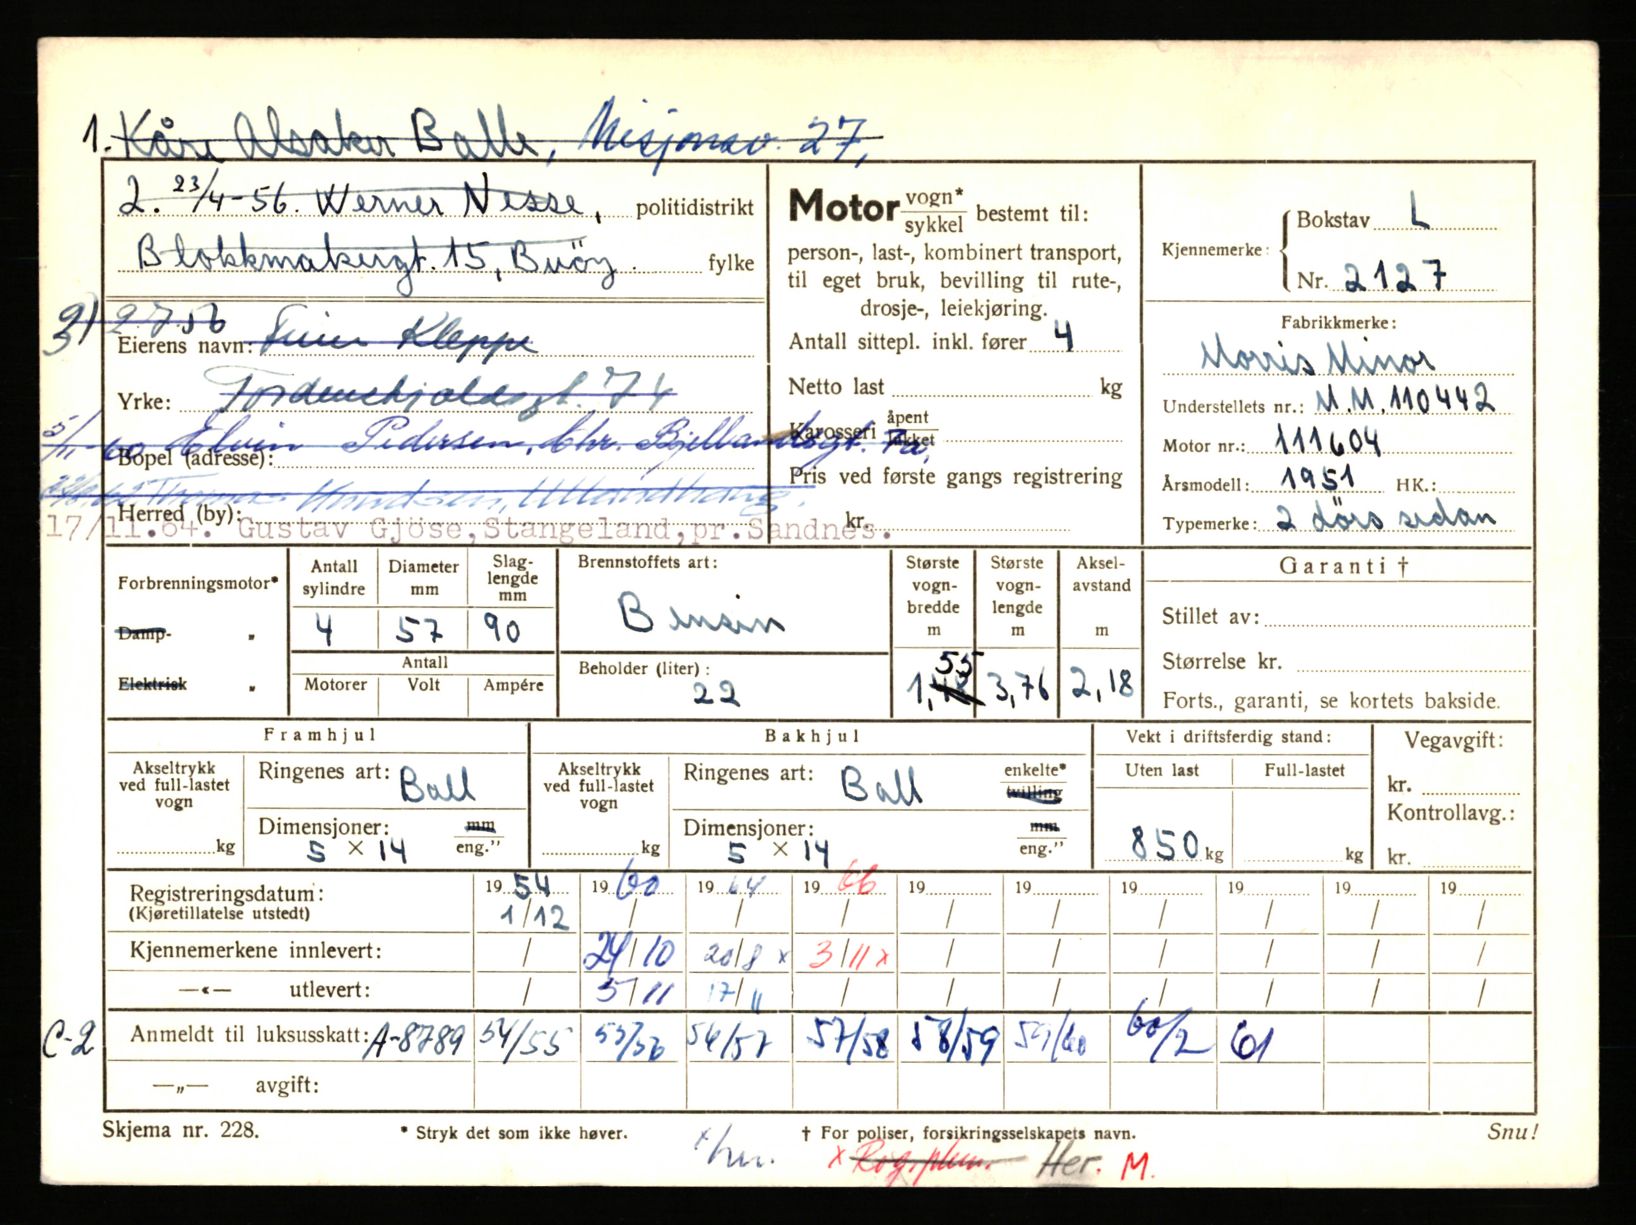 1. Kåre Alsaker Balle, Misjonsv. 27,
2. 23/4-56. Werner Nesse, politidistrikt
Blokkmakergt. 15, Buöy. fylke
3) 2 7 56
Eierens navn: Kleppe
Yrke: Tordenskjoldsgt. 74
5/11-60 Elvin Pedersen, Chr. Bjellandsgt. 7a,
Bopel (adresse):
Thomas Knudsen, Ullandhaug.
Herred (by):
17/11.64. Gustav Gjöse, Stangeland, pr. Sandnes.
Motor vogn* sykkel bestemt til:
person-, last-, kombinert transport,
til eget bruk, bevilling til rute-,
drosje-, leiekjøring.
Antall sittepl. inkl. fører 4
Netto last kg
Karosseri åpent lukket
Pris ved første gangs registrering
kr.
Kjennemerke: Bokstav L
Nr. 2127
Fabrikkmerke:
Morris Minor
Understellets nr.: M.M. 110442
Motor nr.: 111604
Årsmodell: 1951 HK.:
Typemerke: 2 dörs sedan
Forbrenningsmotor*
Damp- "
Elektrisk "
Antall sylindre 4
Diameter mm 57
Slag-lengde mm 90
Antall
Motorer Volt Ampére
Brennstoffets art:
Bensin
Beholder (liter):
22
Største vogn-bredde m 1,55
Største vogn-lengde m 3,76
Aksel-avstand m 2,18
Garanti †
Stillet av:
Størrelse kr.
Forts., garanti, se kortets bakside.
Framhjul
Akseltrykk ved full-lastet vogn
kg
Ringenes art: Ball
Dimensjoner: mm
5 × 14 eng."
Bakhjul
Akseltrykk ved full-lastet vogn
kg
Ringenes art: Ball enkelte* tvilling
Dimensjoner: mm
5 × 14 eng."
Vekt i driftsferdig stand:
Uten last Full-lastet
850 kg kg
Vegavgift:
kr.
Kontrollavg.:
kr.
Registreringsdatum: 1954 1960 1964 1966 19 19 19 19 19 19
(Kjøretillatelse utstedt) 1/12 / / / / / / / / /
Kjennemerkene innlevert: / 24/10 20/8 x 3/11 x / / / / / /
—«— utlevert: / 5/11 17/11 / / / / / / /
C-2 Anmeldt til luksusskatt: A-8789 54/55 55/56 56/57 57/58 58/59 59/60 60/2 61
—„— avgift:
Skjema nr. 228. * Stryk det som ikke høver. † For poliser, forsikringsselskapets navn. Snu!
x her. x Rog. Her. M.